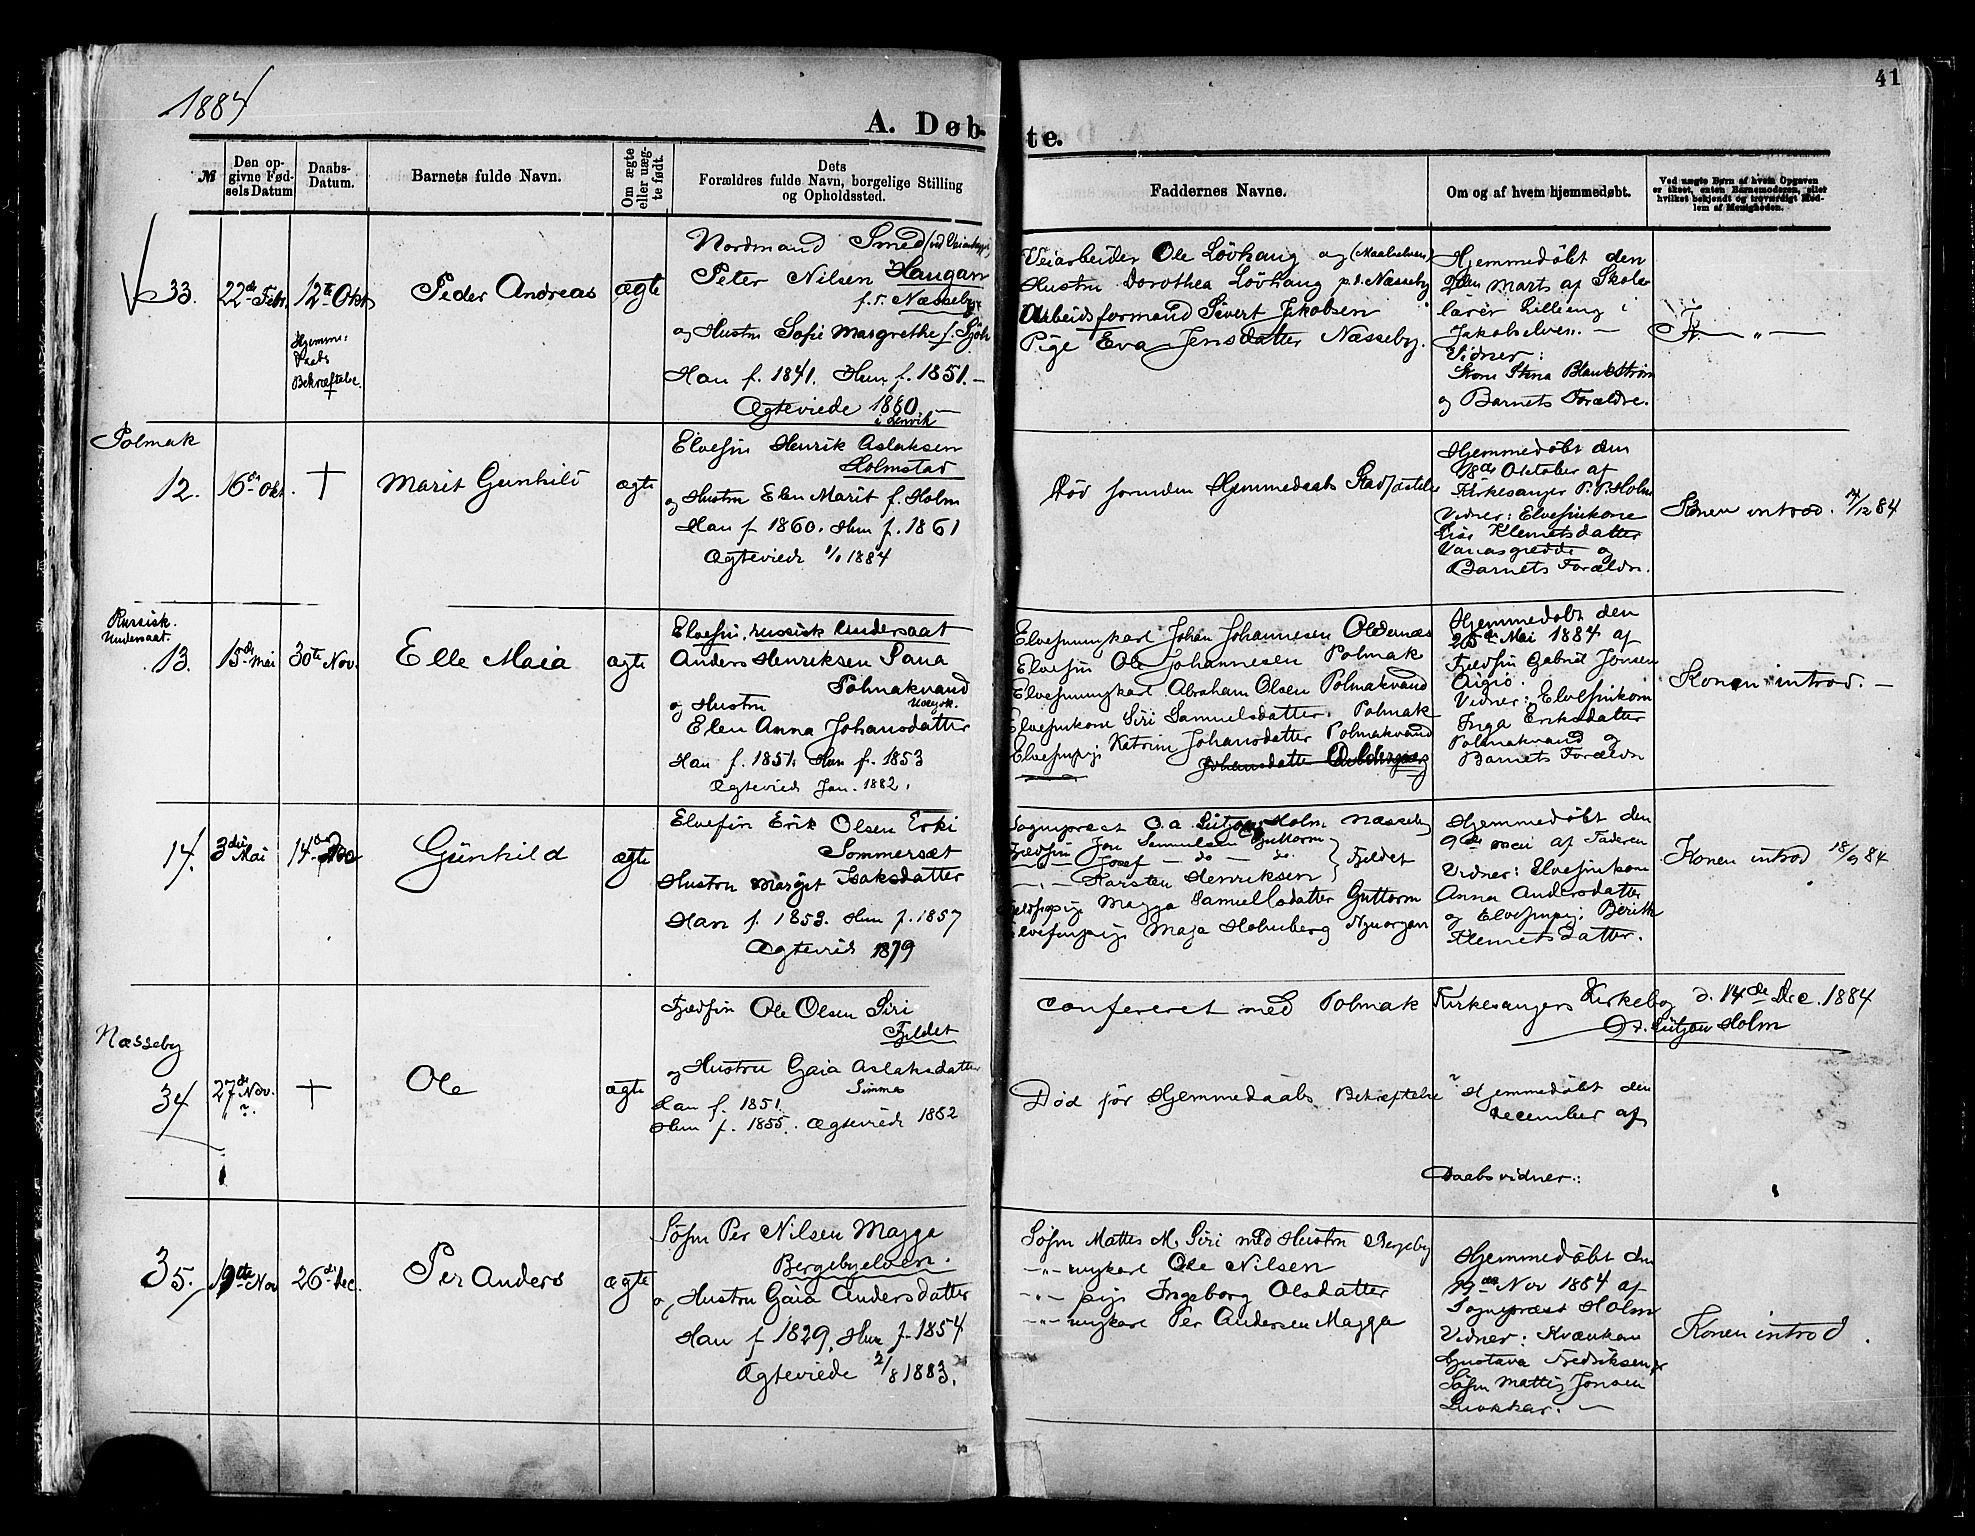 41
1884
A. Døb-
te.
№
Den op-
givne Fød-
sels Datum
Daabs-
Datum.
Barnets fulde Navn.
Om ægte
eller uæg-
te født.
Dets
Forældres fulde Navn, borgelige Stilling
og Opholdssted.
Faddernes Navne.
Om og af hvem hjemmedøbt.
Ved uægte Børn af hvem Opgaven
er skeet, enten Barnemoderen, eller
hvilket bekjendt og troværdigt Med-
lem af Menigheden.
33.
22de Febr.
12te Okt
Hjemme-
daabs
Bekræftelse.
Peder Andreas
ægte
Nordmand Smed
Peter Nilsen Haugan
Næsseby
og Hustru Sofie Margrethe f.
Han f. 1841. Hun f. 1851. —
Ægteviede 1880. —
i Lenvik
Veiarbeider Ole Lövhaug og (Maalselven)
Hustru Dorothea Lövhaug p.t. Næsseby
Arbeidsformand Sivert Jakobsen
Pige Eva Jensdatter Næsseby.
Hjemmedøbt den
2den Marts af Skole-
lærer Lilleeng i
Jakobselven. —
Vidner:
Kone Stina Blankström
og Barnets Forældre.
Polmak
12.
16de Okt.
†
Marit Gunhild
ægte
Elvefin Henrik Aslaksen
Holmstad
og Hustru Elen Marit f. Holm
Han f 1860. Hun f. 1861
Ægteviede 1884
Död forinden Hjemmedaabs Stadfæstelse
Hjemmedøbt den
18de Oktober af
Kirkesanger P. P. Holm
Vidner: Elvefinkone
Klemetsdatter
og
Barnets Forældre.
Konen introd. /12 84
Russisk.
Undersaat.
13.
15de Mai
30te Nov.
Elle Maia
ægte
Elvefin, russisk Undersaat
Anders Henriksen
Polmakvand
og Hustru
Elen Anna Johansdatter
Han f. 1851. Hun f. 1853
Ægteviede Jan. 1882.
Elvefinungkarl Johan Johannesen Oldernæs
Elvefin Ole Johannesen Polmak
Elvefinungkarl Abraham Olsen Polmakvand
Elvefinkone Siri Samuelsdatter Polmak
Elvefinpige Katrine Johansdatter Polmakvand
Johansdatter
Hjemmedøbt den
25de Mai 1884 af
Fjeldfin Gabriel Jonsen
Vidner: Elvefinkone
Inga Eriksdatter
Polmakvand og
Barnets Forældre
Konen introd. —
14.
3die Mai
14de
Gunhild
ægte
Elvefin Erik Olsen Erki
Sommersæt
Hustru Margit Isaksdatter
Han f. 1853. Hun f. 1857
Ægteviede 1879
Sognepræst O. A. Lützow Holm Næsseby
Fjeldfin Jon Samuelsen Guttorm
— Josef — do — do.
— " — Karsten Henriksen
Fjeldet
Fjeldfinpige Magga Samuelsdatter Guttorm
Elvefinpige Maja Holmberg Nyuorgam
Hjemmedøbt den
9de Mai af Faderen
Vidner: Elvefinkone
Anna Andersdatter
og Elvefinpige Berith
Klemetsdatter.
Konen introd 18/9 84
Confereret med Polmak Kirkesangers Kirkebog d. 14de Dec. 1884
O. A. Lützow Holm
Næsseby
34
27de Nov.
?
†
Ole
ægte
Fjeldfin Ole Olsen Siri
Fjeldet
og Hustru Gaia Aslaksdatter
Simma
Han f. 1851
Hun f. 1855. Ægteviede 1882
Död før Hjemmedaabs Bekræftelse
? Hjemmedøbt den
December af
Daabsvidner:
35.
19de Nov
26de Dec.
Per Anders
ægte
Søfin Per Nilsen Magga
Bergebyelven.
og Hustru Gaia Andersdatter
Han f 1829, Hun f. 1854
Ægteviede 2/8 1883.
Søfin Mattis M. Siri med Hustru Bergeby
— " — ungkarl Ole Nilsen
— " — pige Ingeborg Olsdatter
— " — ungkarl Per Andersen Magga
Hjemmedøbt den
19de Nov 1884 af
Sognepræst Holm
Vidner: Kvænkone
Gustava Fredriksen og
Søfin Mattis Jonsen
Konen introd.